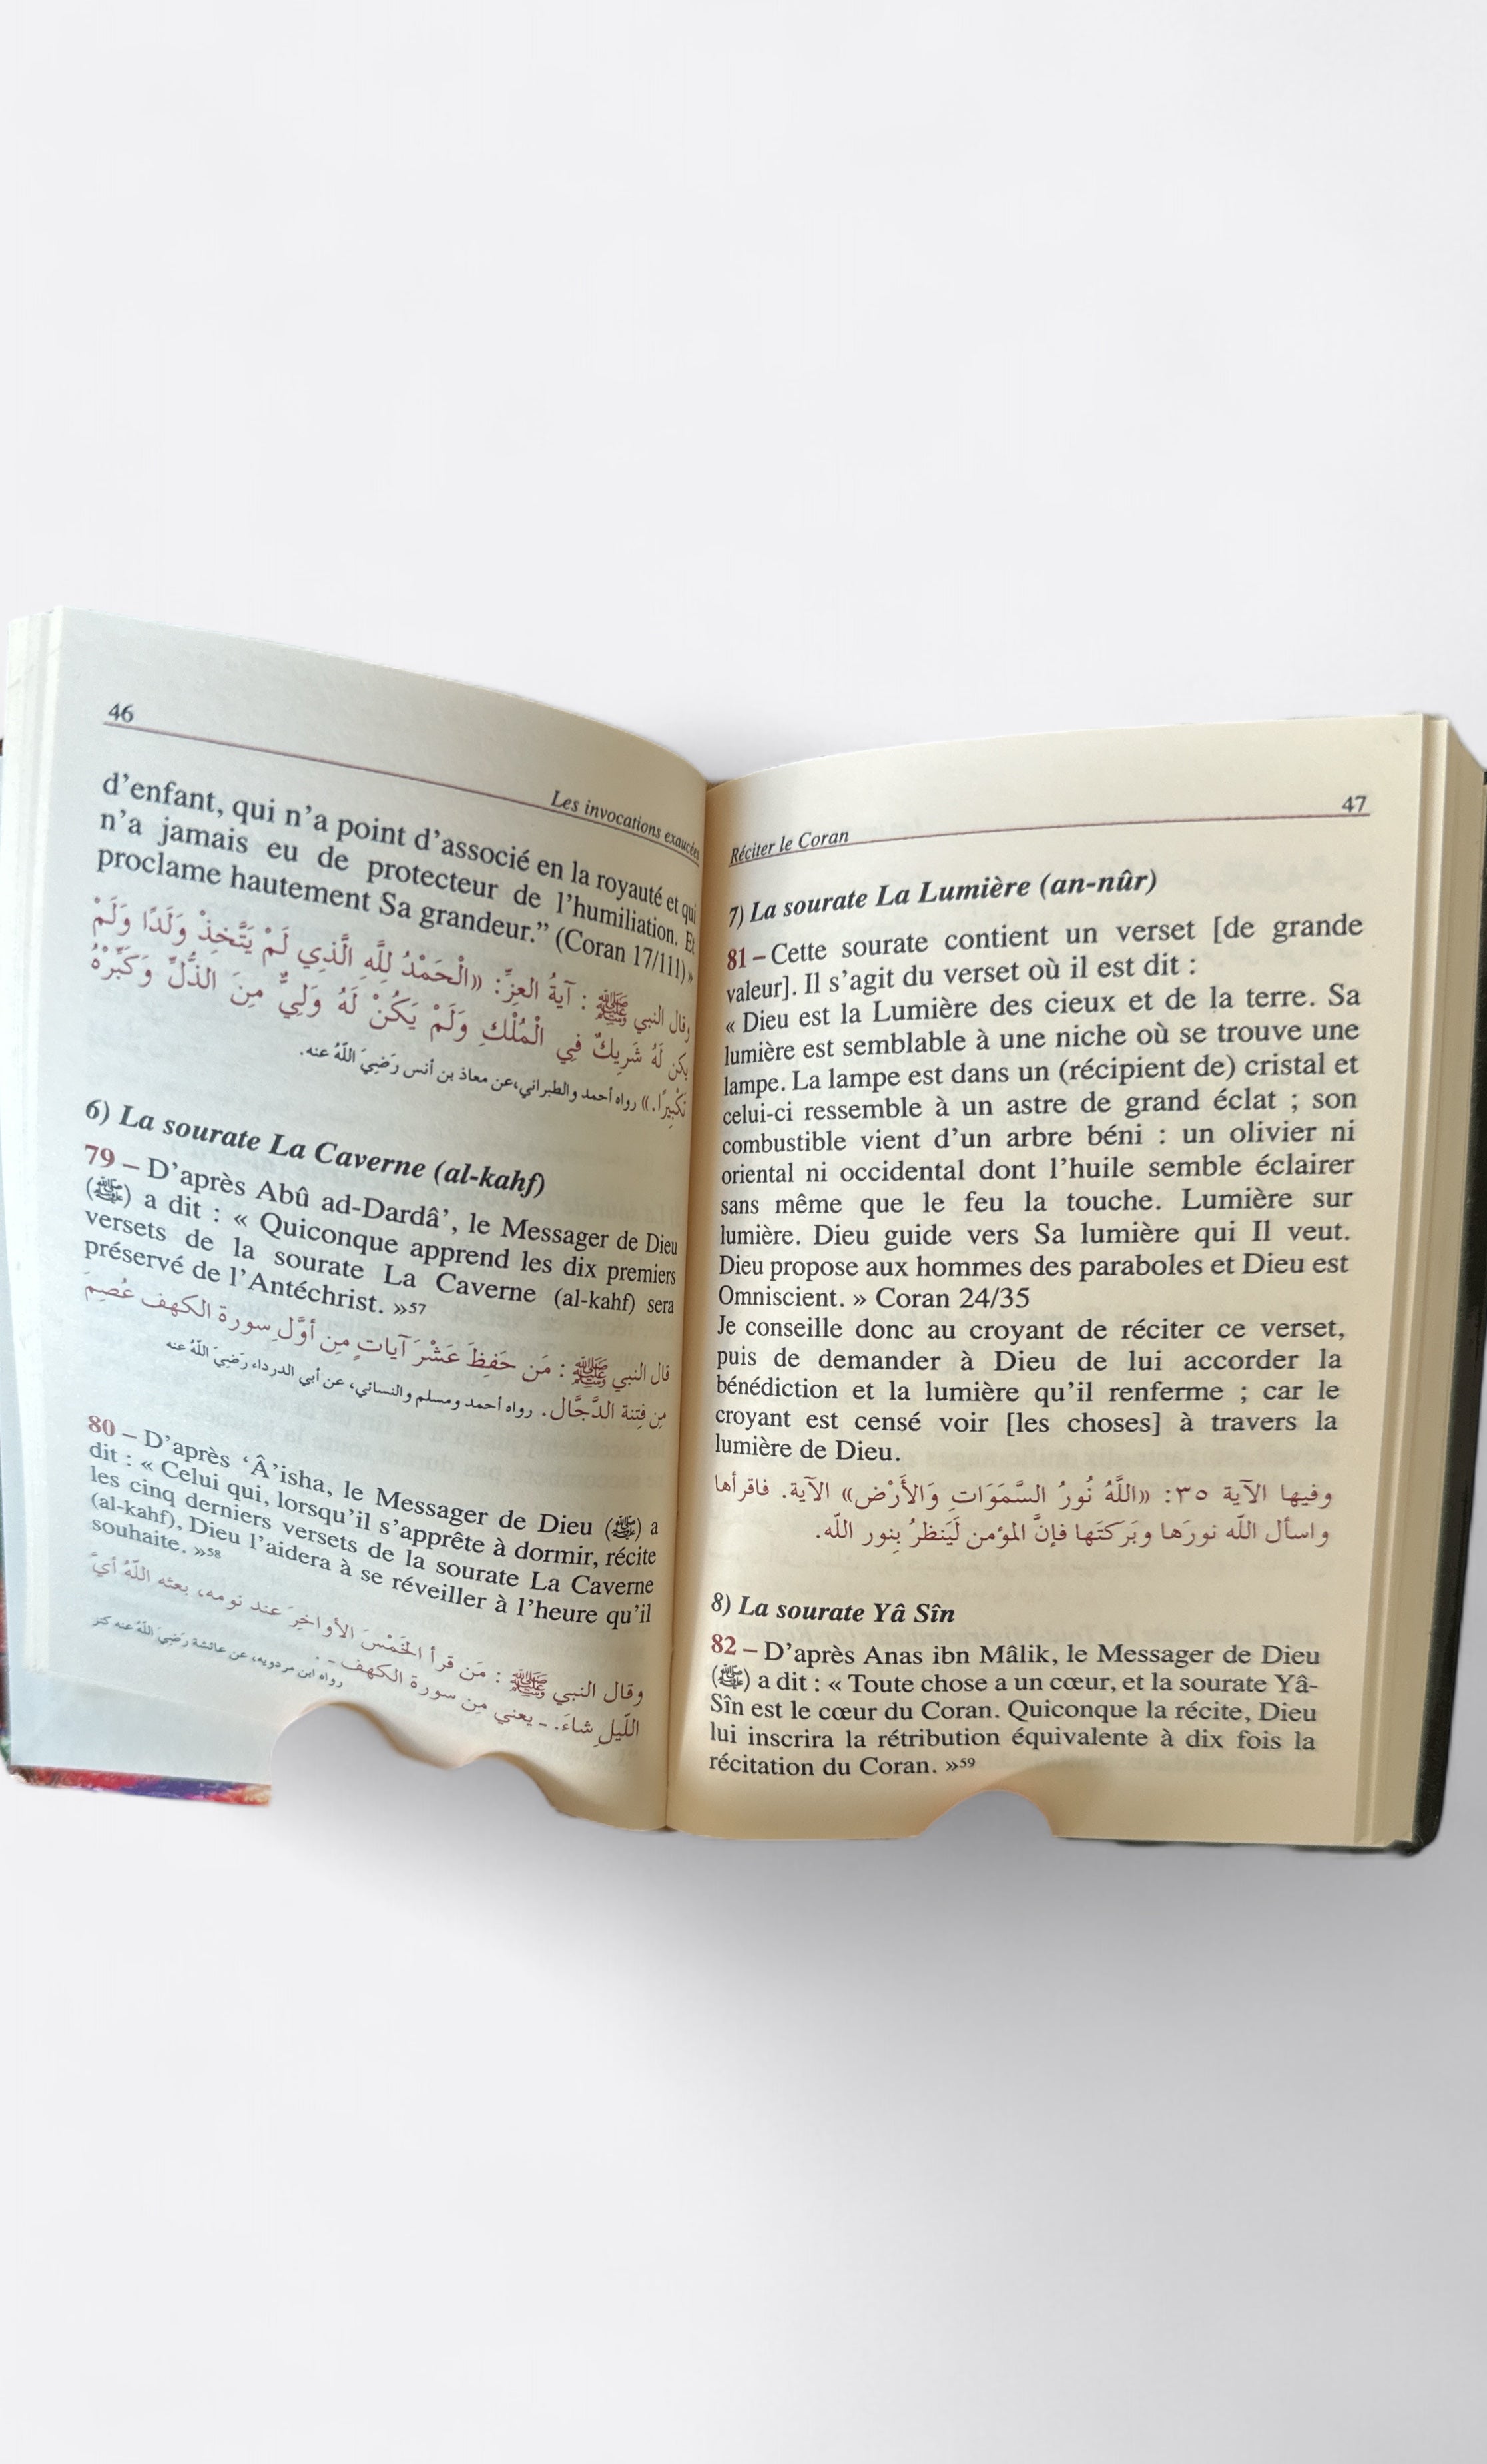 46
Les invocations exaucées
d'enfant, qui n'a point d'associé en la royauté et qui
n'a jamais eu de protecteur de l'humiliation. Et
proclame hautement Sa grandeur.” (Coran 17/111)»
وقال النبي ﷺ : آيةُ العزِّ: «الْحَمْدُ لِلَّهِ الَّذِي لَمْ يَتَّخِذْ وَلَدًا وَلَمْ
يكن لَهُ شَرِيكٌ فِي الْمُلْكِ وَلَمْ يَكُنْ لَهُ وَلِيٌّ مِنَ الذُّلِّ وَكَبِّرْهُ
تَكْبِيرًا.» رواه أحمد والطبراني،عن معاذ بن أنس رَضِيَ اللّهُ عنه.
6) La sourate La Caverne (al-kahf)
79 – D'après Abû ad-Dardâ’, le Messager de Dieu
(ﷺ) a dit : « Quiconque apprend les dix premiers
versets de la sourate La Caverne (al-kahf) sera
préservé de l'Antéchrist. »57
قال النبي ﷺ : مَن حَفِظَ عَشْرَ آياتٍ مِن أوَّلِ سورة الكهف عُصِمَ
مِن فِتنة الدَّجَّال. رواه أحمد ومسلم والنسائي، عن أبي الدرداء رَضِيَ اللّهُ عنه
80 – D'après ‘Â’isha, le Messager de Dieu (ﷺ) a
dit : « Celui qui, lorsqu'il s'apprête à dormir, récite
les cinq derniers versets de la sourate La Caverne
(al-kahf), Dieu l'aidera à se réveiller à l'heure qu'il
souhaite. »58
وقال النبي ﷺ : مَن قرأ الخَمْسَ الأواخِرَ عند نومه، بعثه اللّهُ أيَّ
اللّيلِ شاءَ. ـ يعني مِن سورة الكهف ـ .
رواه ابن مردويه، عن عائشة رَضِيَ اللّهُ عنه كنز
Réciter le Coran
47
7) La sourate La Lumière (an-nûr)
81 – Cette sourate contient un verset [de grande
valeur]. Il s'agit du verset où il est dit :
« Dieu est la Lumière des cieux et de la terre. Sa
lumière est semblable à une niche où se trouve une
lampe. La lampe est dans un (récipient de) cristal et
celui-ci ressemble à un astre de grand éclat ; son
combustible vient d'un arbre béni : un olivier ni
oriental ni occidental dont l'huile semble éclairer
sans même que le feu la touche. Lumière sur
lumière. Dieu guide vers Sa lumière qui Il veut.
Dieu propose aux hommes des paraboles et Dieu est
Omniscient. » Coran 24/35
Je conseille donc au croyant de réciter ce verset,
puis de demander à Dieu de lui accorder la
bénédiction et la lumière qu'il renferme ; car le
croyant est censé voir [les choses] à travers la
lumière de Dieu.
وفيها الآية ٣٥: «اللَّهُ نُورُ السَّمَوَاتِ وَالأَرْض» الآية. فاقرأها
واسأل اللّه نورَها وبَركتَها فإنَّ المؤمن لَيَنظرُ بِنور اللّه.
8) La sourate Yâ Sîn
82 – D'après Anas ibn Mâlik, le Messager de Dieu
(ﷺ) a dit : « Toute chose a un cœur, et la sourate Yâ-
Sîn est le cœur du Coran. Quiconque la récite, Dieu
lui inscrira la rétribution équivalente à dix fois la
récitation du Coran. »59